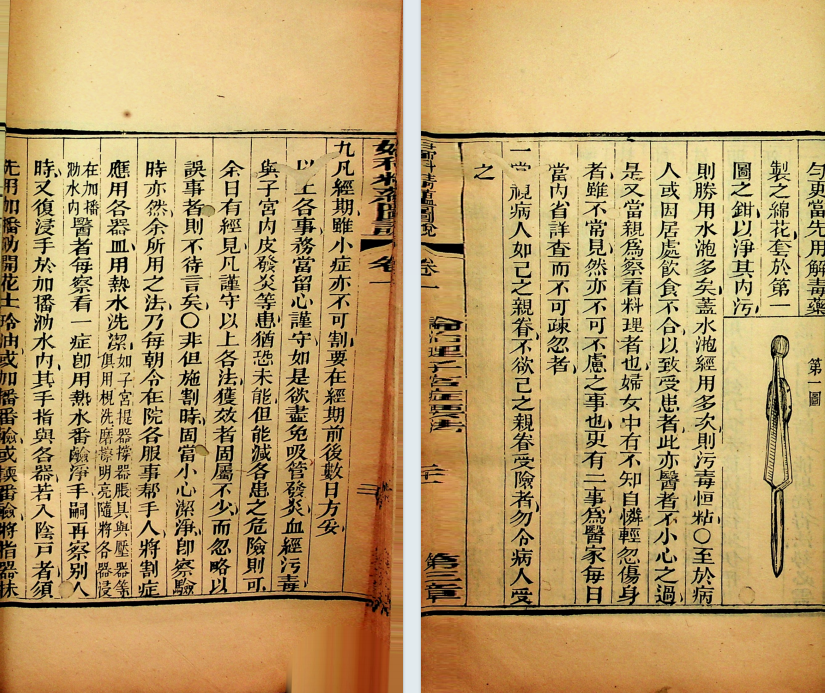 勻更當先用解毒藥
製之綿花套於第一
圖之鉗以淨其內污
第一圖
則勝用水泡多矣蓋水泡經用多次則污毒恒粘○至於病
人或因居處飲食不合以致受患者此亦醫者不小心之過
是又當親爲察看料理者也婦女中有不知自憐輕忽傷身
者雖不常見然亦不可不慮之事也更有二事爲醫家每日
當內省詳查而不可疎忽者
一當視病人如己之親眷不欲己之親眷受險者勿令病人受
之
婦科精蘊圖說 卷一 論治理子宮症要法 第三章
婦科精蘊圖說 卷一
九凡經期雖小症亦不可割要在經期前後數日方妥
以上各事務當留心謹守如是欲盡免吸管發炎血經污毒
與子宮內皮發炎等患猶恐未能但能減各患之危險則可
余日有經見凡謹守以上各法獲效者固屬不少而忽略以
誤事者則不待言矣○非但施割時固當小心潔淨卽察驗
時亦然余所用之法乃每朝令在院各服事幫手人將割症
應用各器皿用熱水洗潔如子宮提器撐器脹具與壓器等俱用梘洗磨擦明亮隨將各器浸
在加播泐水內醫者每察看一症卽用熱水番鹼淨手嗣再察別人
時又復浸手於加播泐水內其手指與各器若入陰戸者須
先用加播泐開花士玲油或加播番鹼或梘番鹼將指器抹